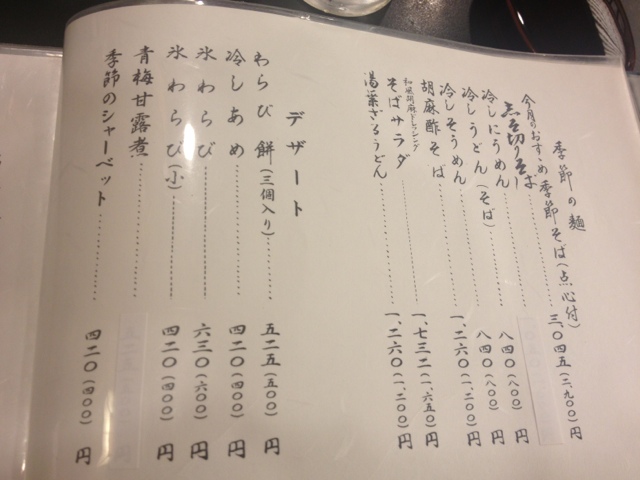 季節の麺
今月のおすすめ季節そば(点心付) 三、〇四五(二、九〇〇)円
切りそば
冷しにうめん 八四〇(八〇〇)円
冷しうどん(そば) 八四〇(八〇〇)円
冷しそうめん 一、二六〇(一、二〇〇)円
胡麻酢そば
和風胡麻ドレッシング
そばサラダ 一、七三二(一、六五〇)円
湯葉ざるうどん 一、二六〇(一、二〇〇)円
デザート
わらび餅(三個入り) 五二五(五〇〇)円
冷しあめ 四二〇(四〇〇)円
氷わらび 六三〇(六〇〇)円
氷わらび(小) 四二〇(四〇〇)円
青梅甘露煮 円
季節のシャーベット 四二〇(四〇〇)円